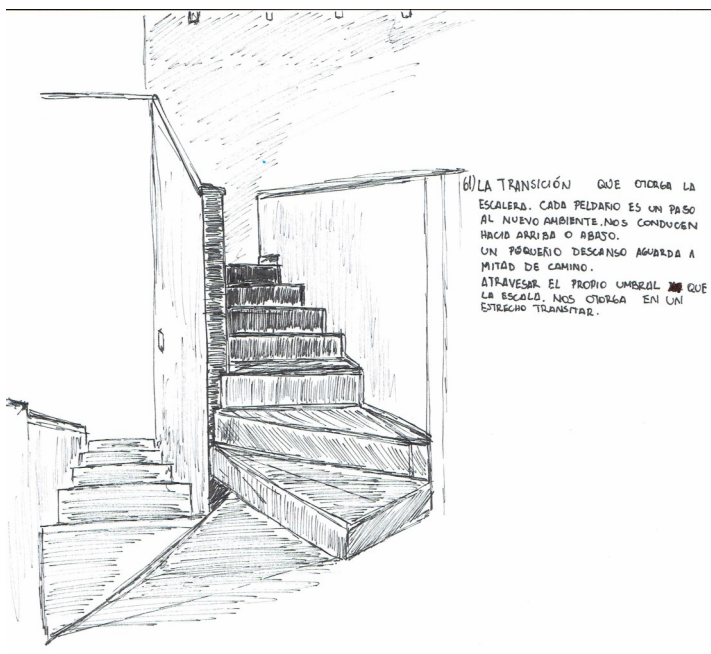 61) LA TRANSICIÓN QUE OTORGA LA
ESCALERA. CADA PELDAÑO ES UN PASO
AL NUEVO AMBIENTE. NOS CONDUCEN
HACIA ARRIBA O ABAJO.
UN PEQUEÑO DESCANSO AGUARDA A
MITAD DE CAMINO.
ATRAVESAR EL PROPIO UMBRAL QUE
LA ESCALA. NOS OTORGA EN UN
ESTRECHO TRANSITAR.